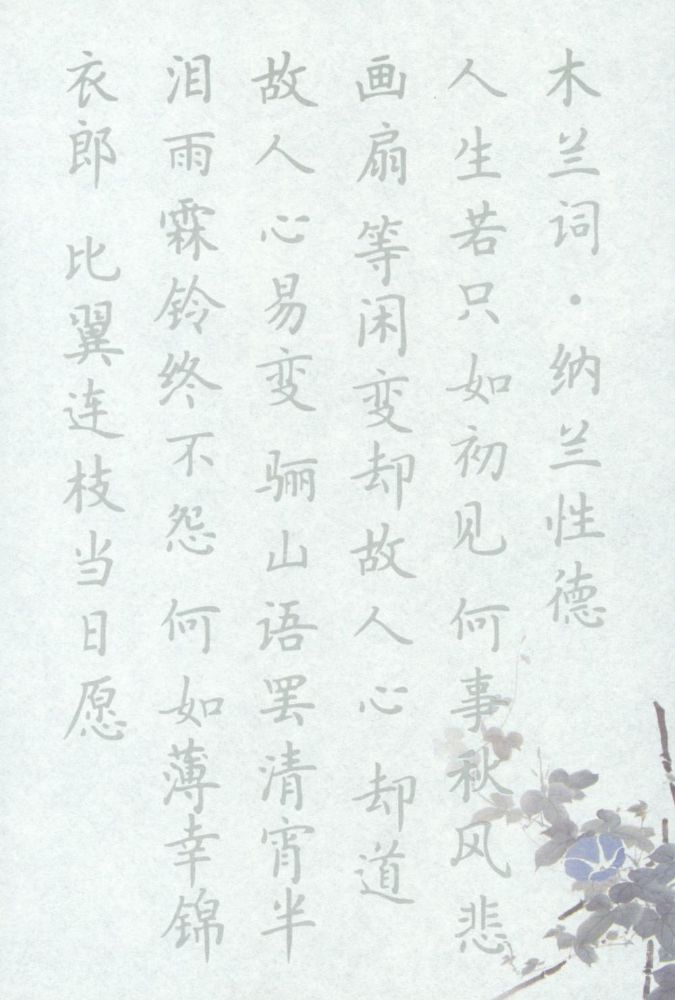 木兰词·纳兰性德
人生若只如初见 何事秋风悲
画扇 等闲变却故人心 却道
故人心易变 骊山语罢清宵半
泪雨霖铃终不怨 何如薄幸锦
衣郎 比翼连枝当日愿